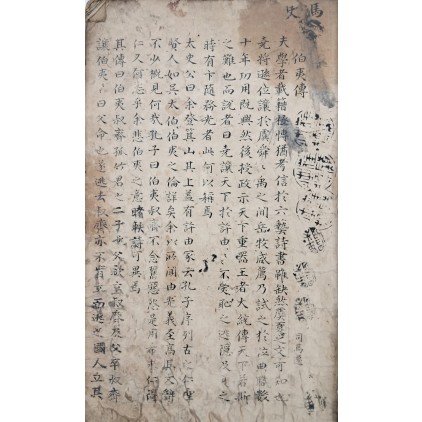 馬史
伯夷傳
夫學者載籍極博猶考信於六藝詩書雖缺然虞夏之文可知也
堯將遜位讓於虞舜〻禹之間岳牧咸薦乃試之於位典職數
十年功用旣興然後授政示天下重器王者大統傳天下若斯
之難也而說者曰堯讓天下於許由〻〻不受恥之逃隱及夏之
時有卞隨務光者此何以稱焉
太史公曰余登箕山其上盖有許由冢云孔子序列古之仁聖
賢人如吳太伯伯夷之倫詳矣余以所聞由光義至高其文辭
不少槪見何哉孔子曰伯夷叔齊不念舊惡怨是用希求仁得
仁又何怨乎余悲伯夷之意睹軼詩可異焉
其傳曰伯夷叔齊孤竹君之二子也父欲立叔齊及父卒叔齊
讓伯夷〻〻曰父命也遂逃去叔齊亦不肯立而逃之國人立其
司馬